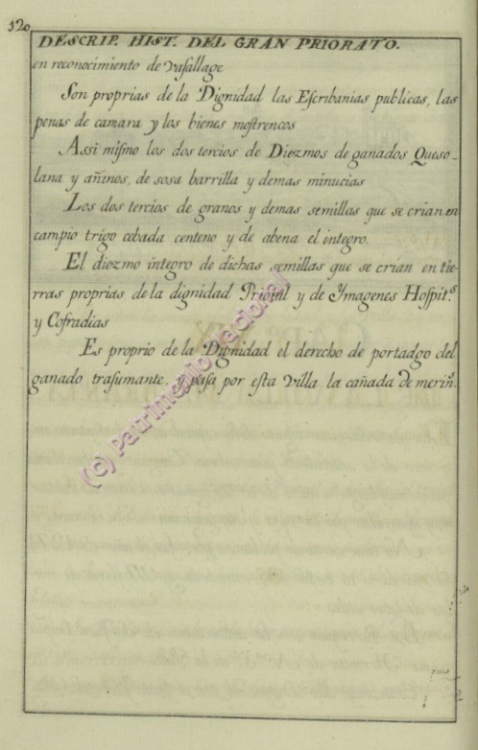 520
DESCRIP. HIST. DEL GRAN PRIORATO.
en reconocimiento de vasallage
Son proprias de la Dignidad las Escribanias publicas, las
penas de camara y los bienes mostrencos
Assi mismo los dos tercios de Diezmos de ganados Queso
lana y añinos, de sosa barrilla y demas minucias
Los dos tercios de granos y demas semillas que se crian en
campio trigo cebada centeno y de abena el integro.
El diezmo integro de dichas semillas que se crian en tie-
rras proprias de la dignidad Prioral y de Ymagenes Hospit.s
y Cofradias
Es proprio de la Dignidad el derecho de portadgo del
ganado trasumante, pasa por esta villa la cañada de merin.s
(c) Patrimonio Nacional